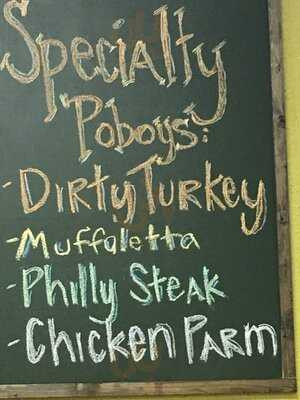 Specialty
Poboys:
-Dirty Turkey
-Muffaletta
-Philly Steak
-Chicken Parm